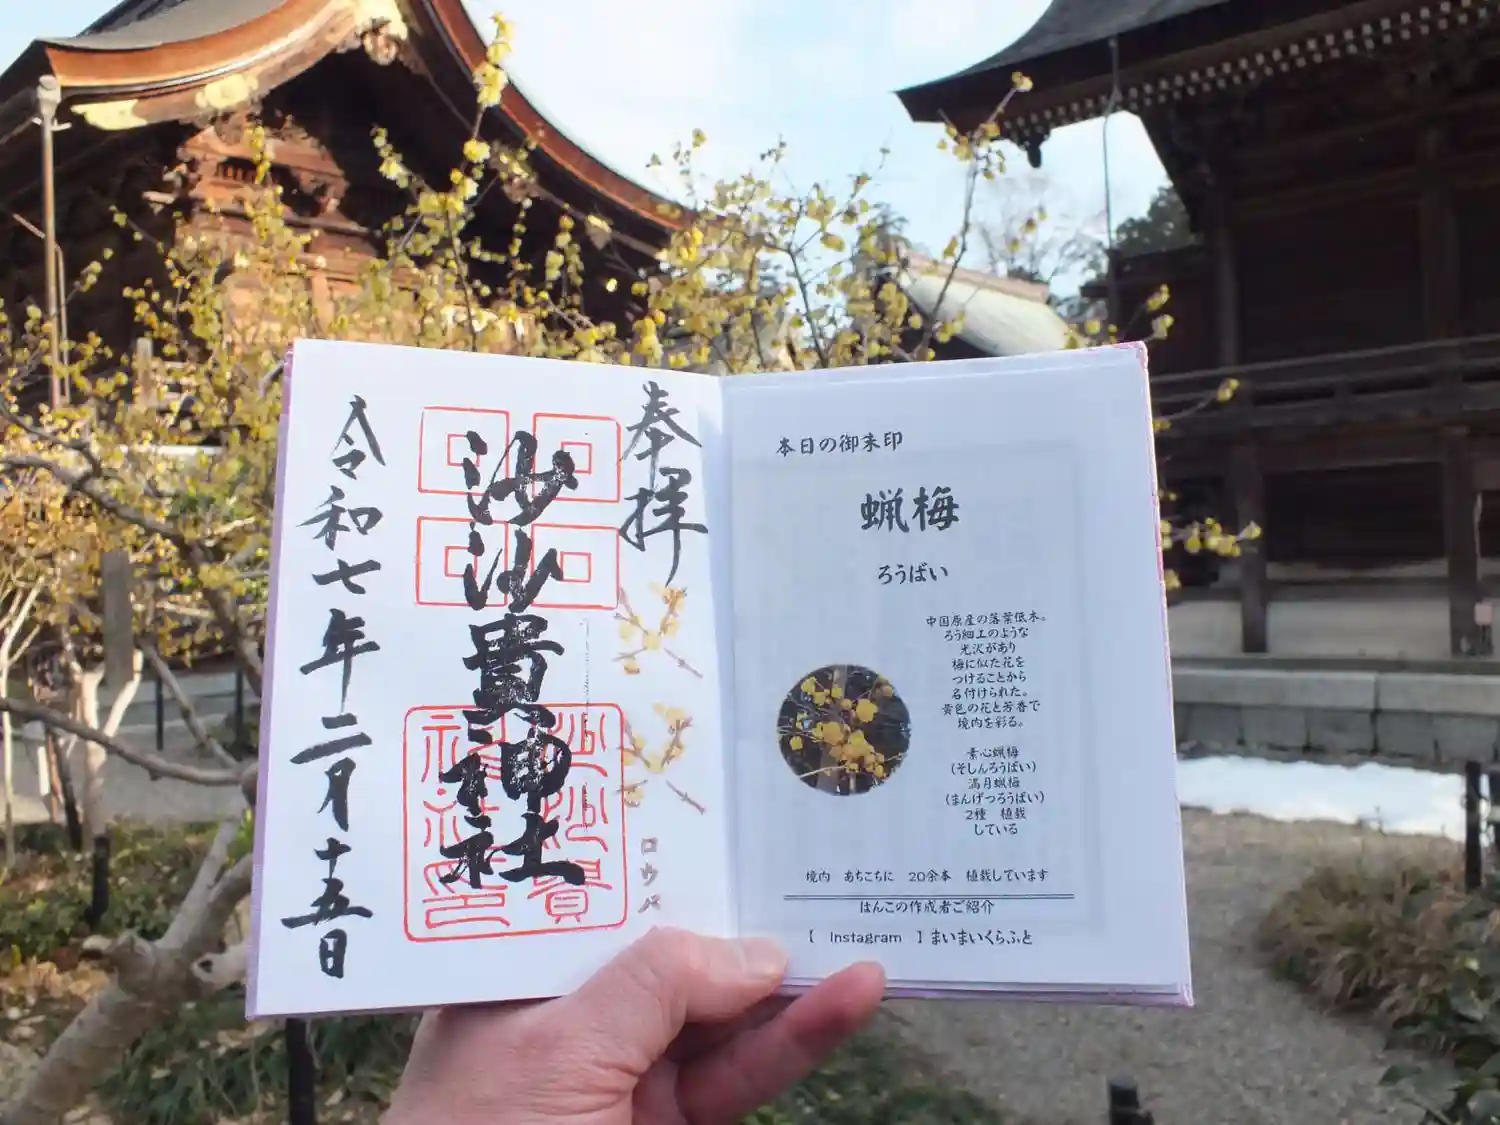 奉拝
沙沙貴神社
令和七年二月十五日
沙沙貴
神社印
ロウバ
本日の御朱印
蝋梅
ろうばい
中国原産の落葉低木。
ろう細工のような
光沢があり
梅に似た花を
つけることから
名付けられた。
黄色の花と芳香で
境内を彩る。
素心蝋梅
(そしんろうばい)
満月蝋梅
(まんげつろうばい)
2種 植栽
している
境内 あちこちに 20余本 植栽しています
はんこの作成者ご紹介
【 Instagram 】まいまいくらふと